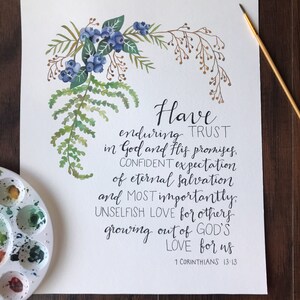 Have
enduring TRUST
in God and His promises,
CONFIDENT expectation
of eternal salvation
and MOST importantly,
UNSELFISH LOVE for others
growing out of GOD'S
LOVE for us
1 CORINTHIANS 13:13